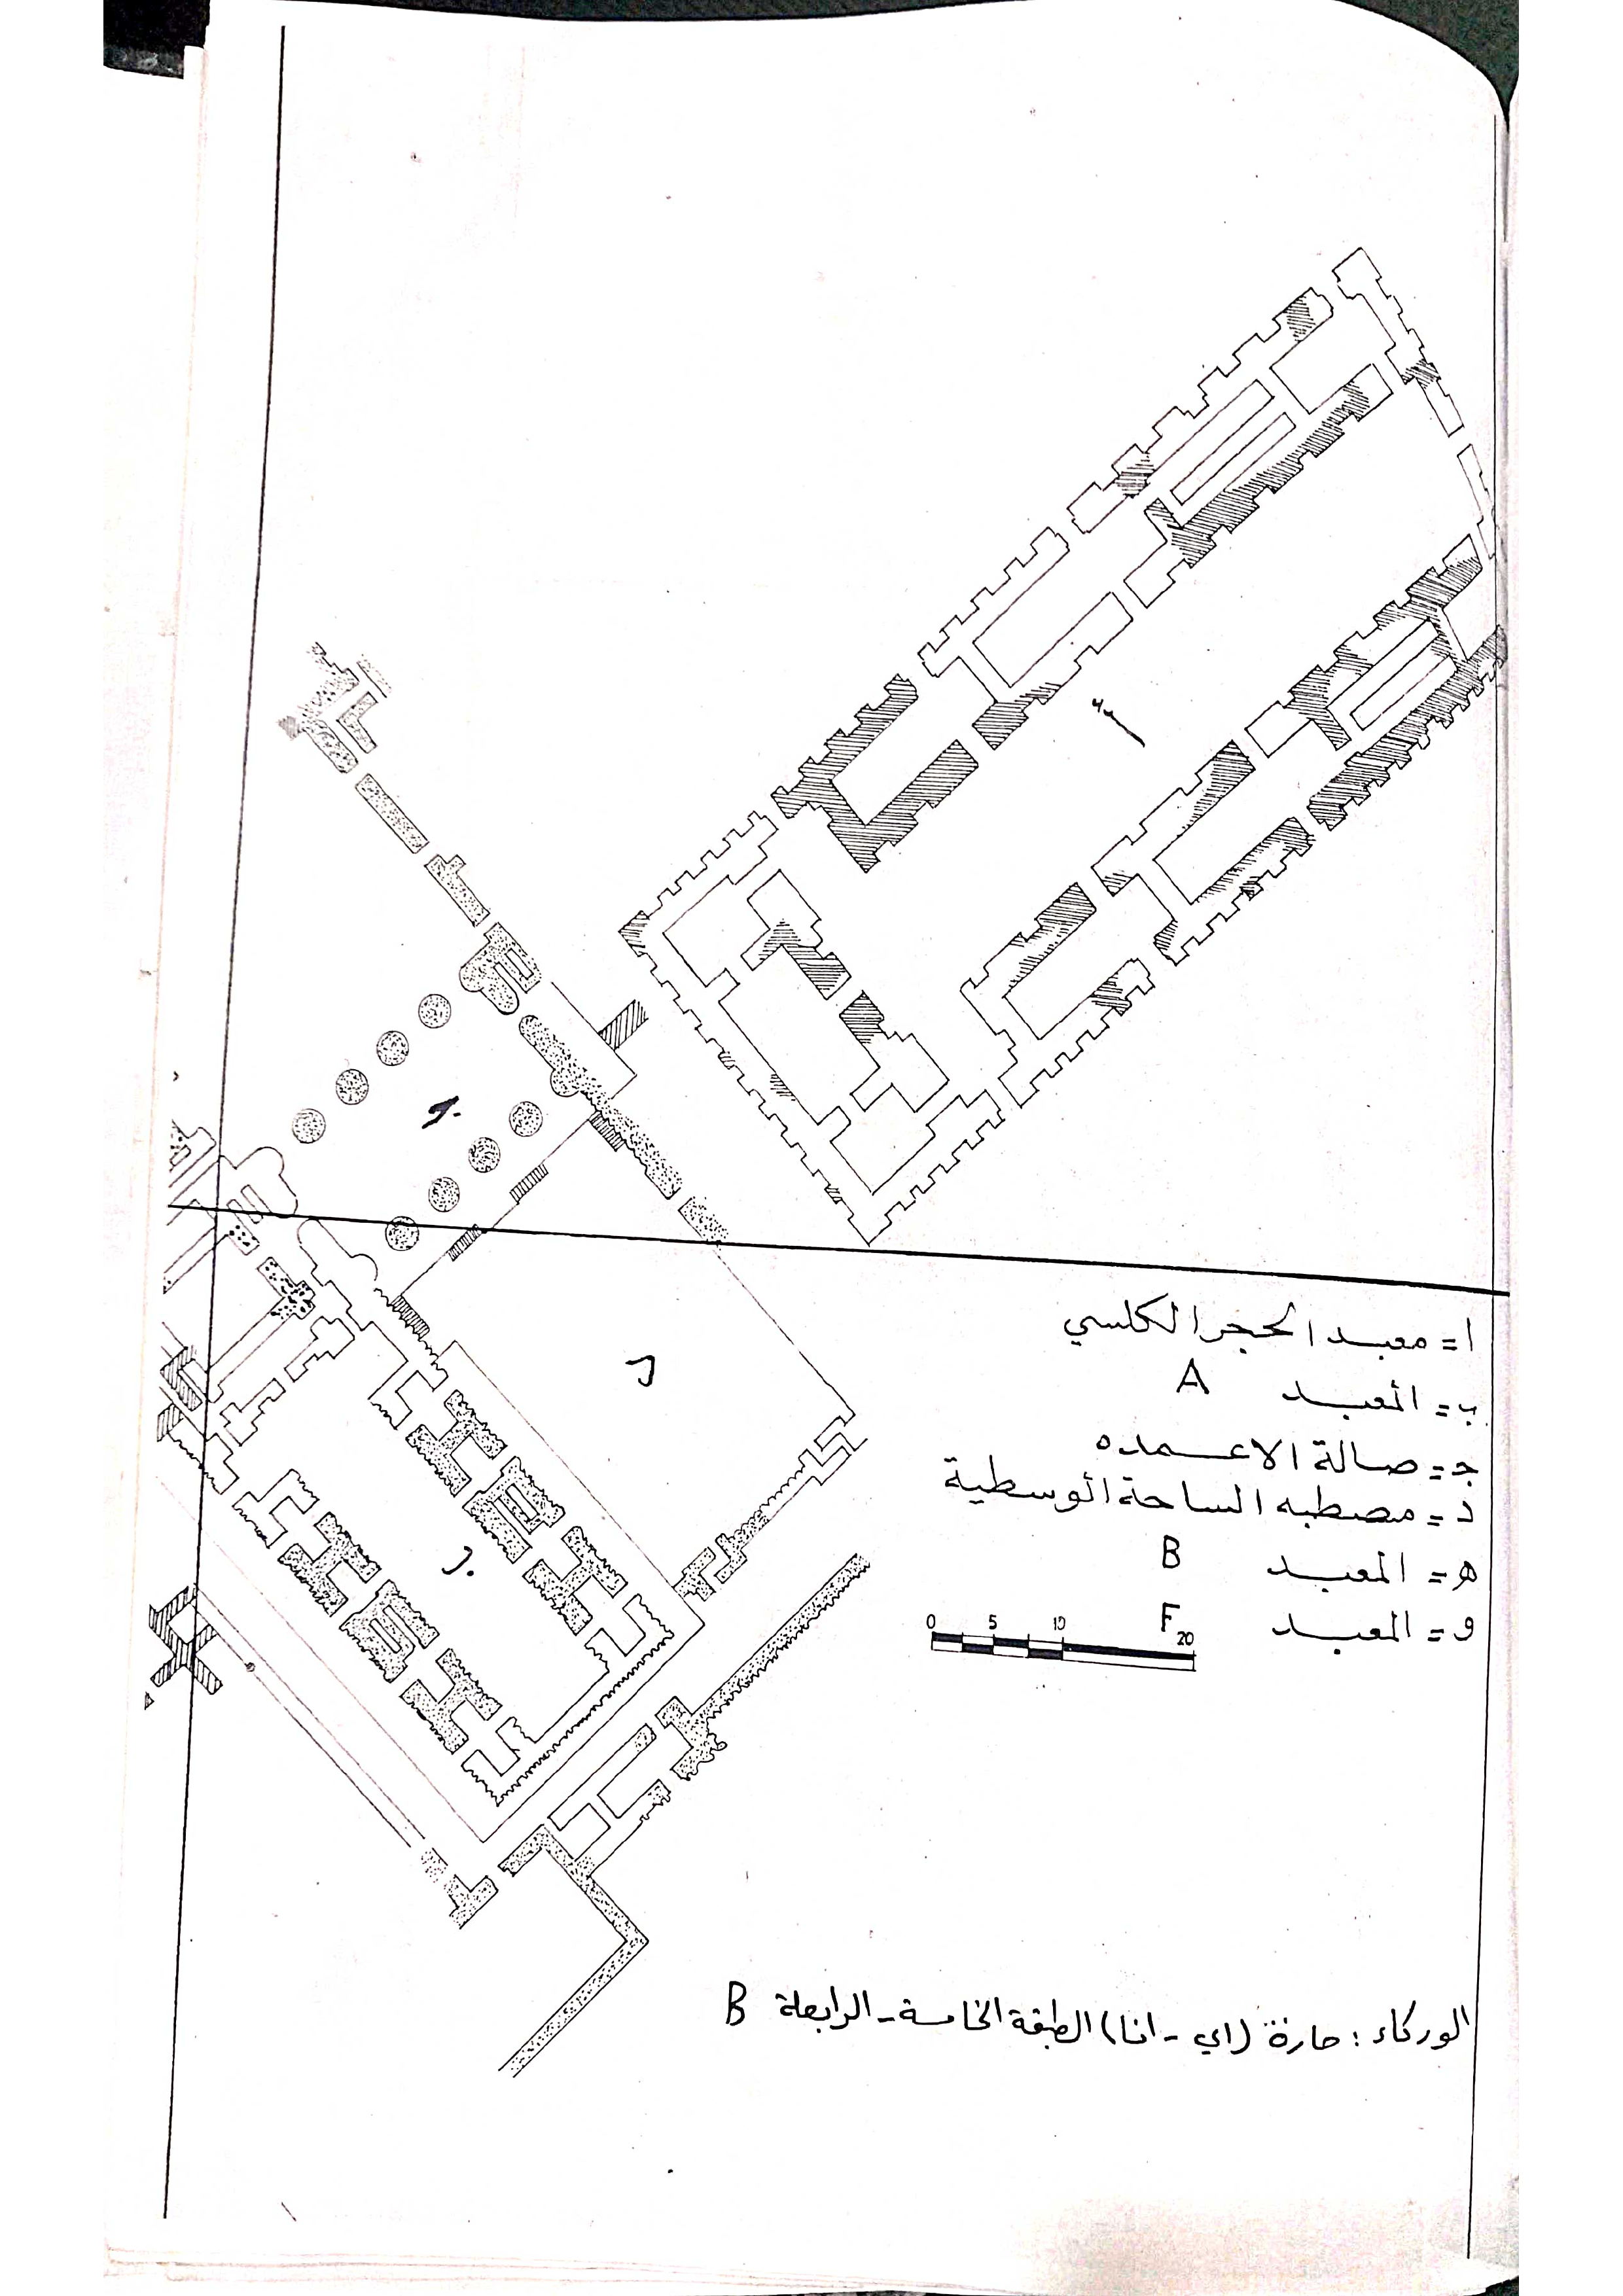 أ
ج
د
ب
ا = معبد الحجر الكلسي
ب = المعبد A
ج = صالة الاعمده
د = مصطبه الساحة الوسطية
ه = المعبد B
و = المعبد F
0 5 10 20
الوركاء : حارة (اي - انا) الطبقة الخامسة - الرابعة B